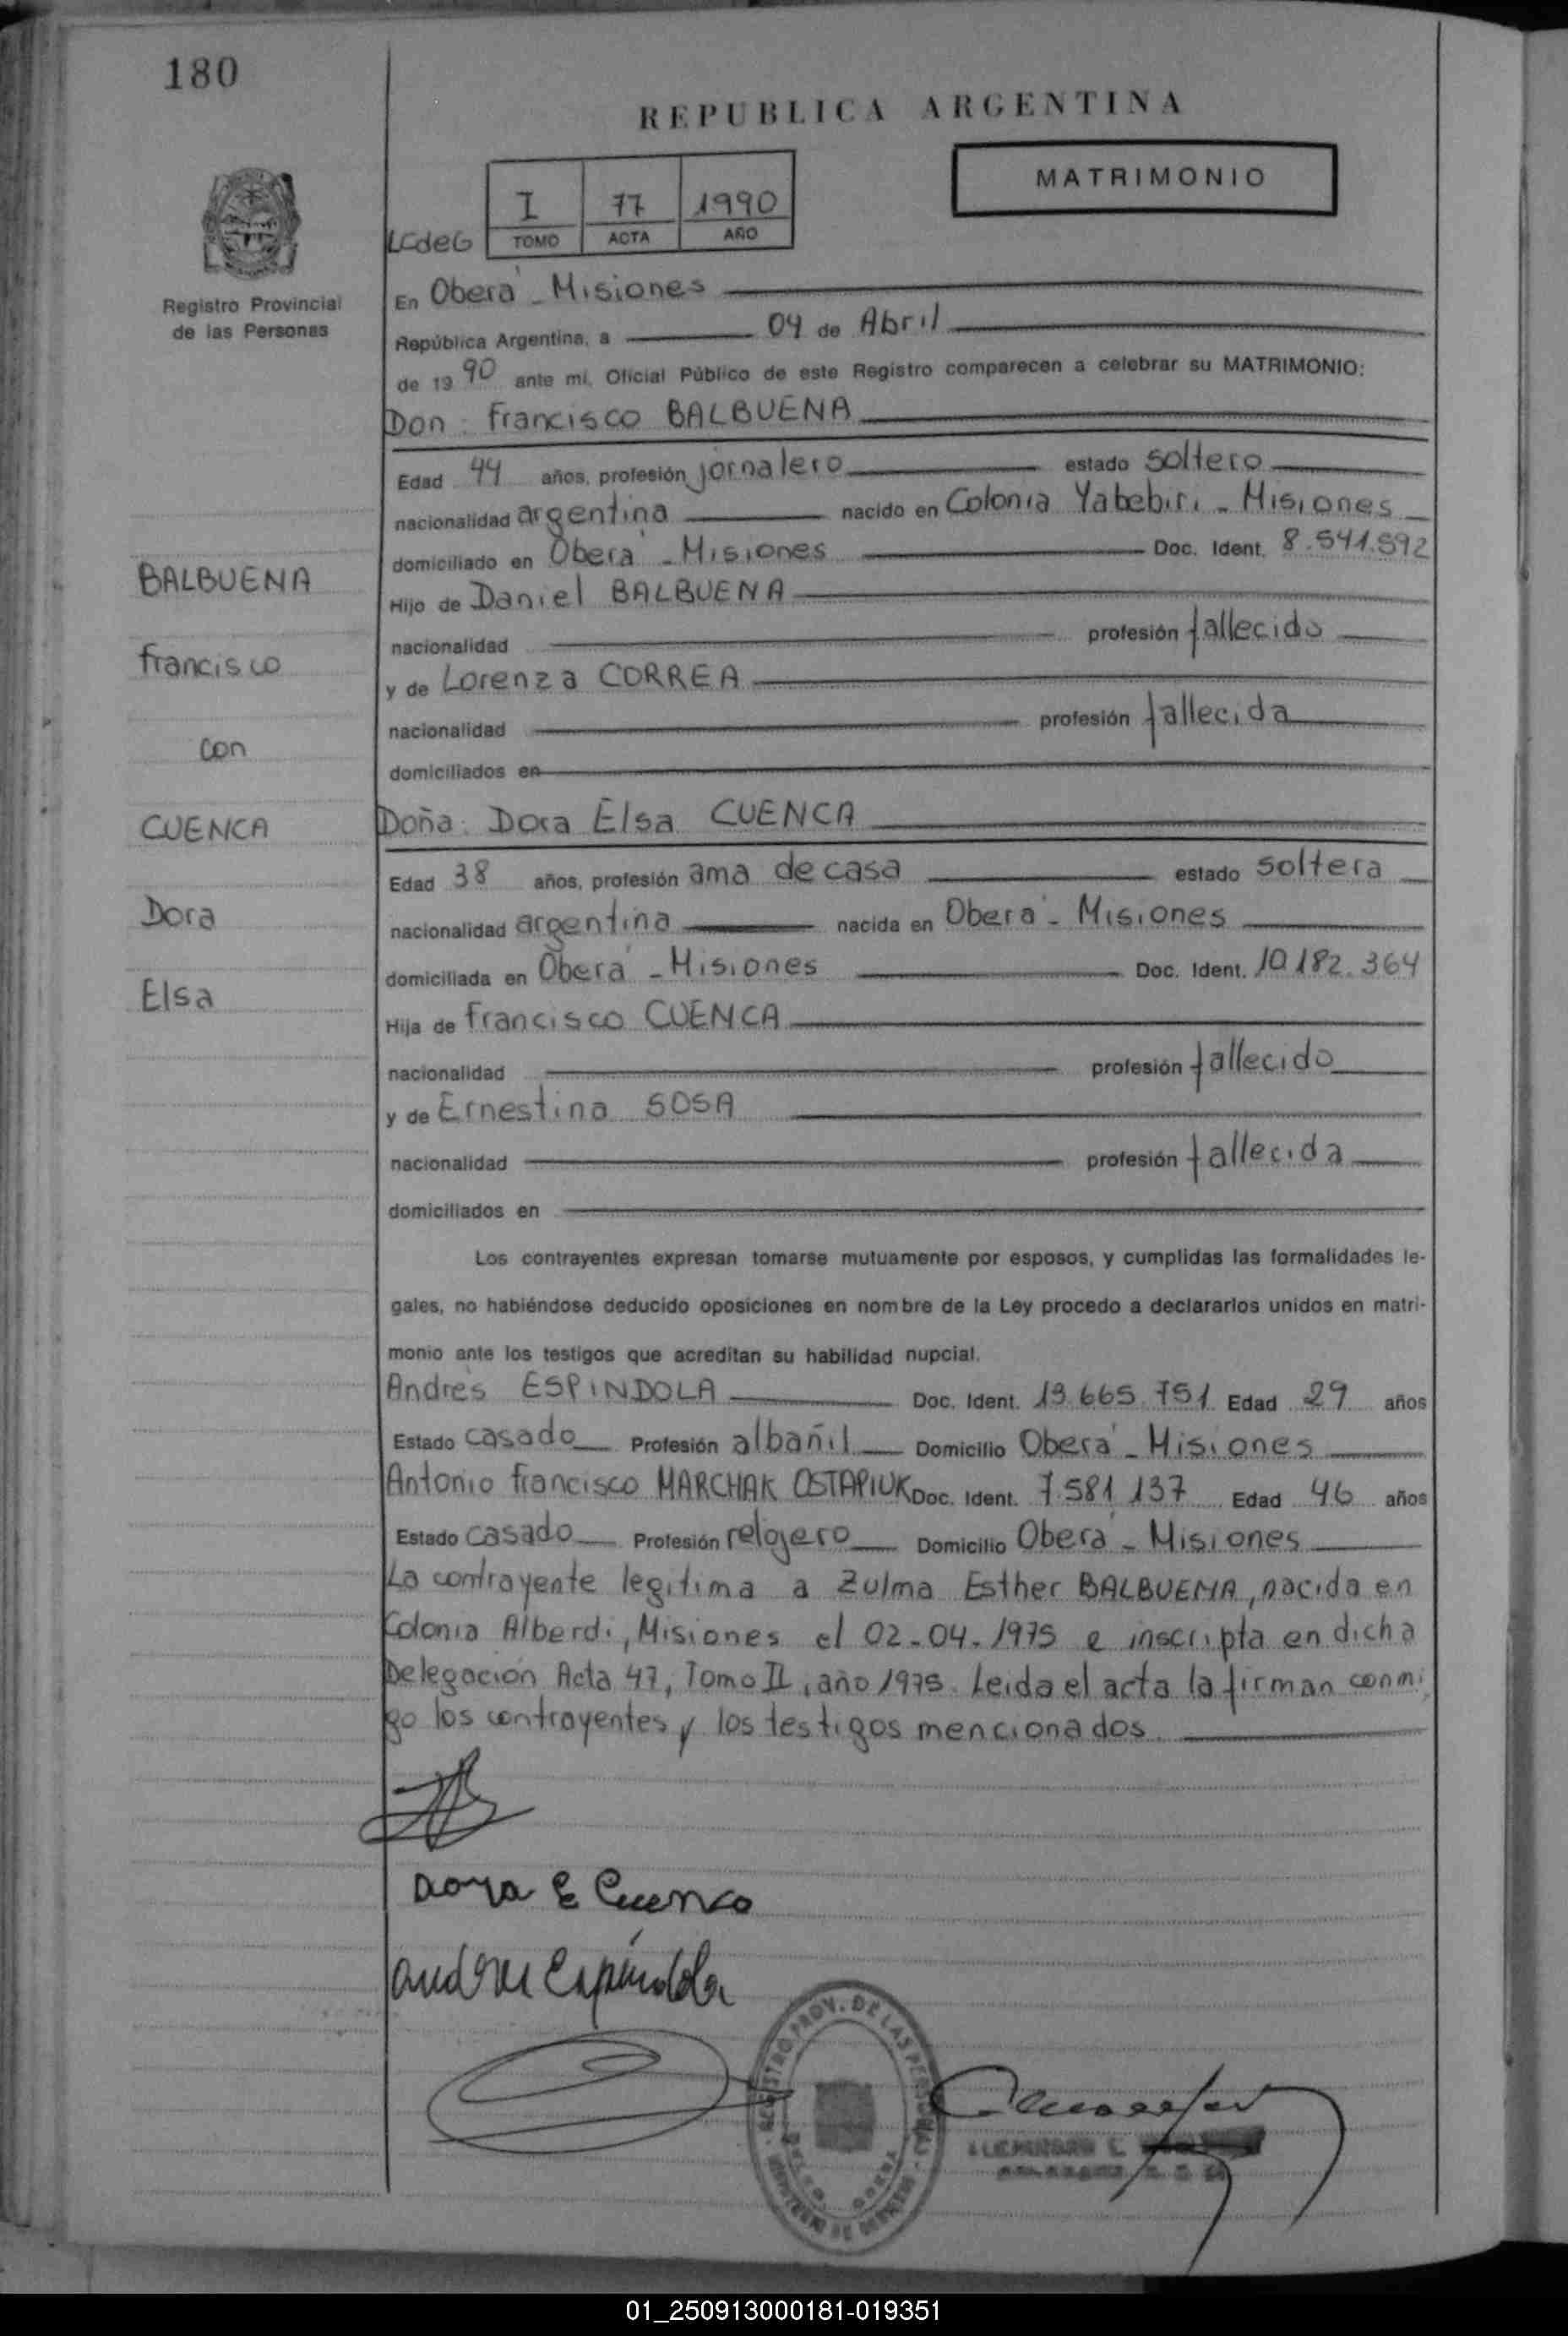 180
REPUBLICA ARGENTINA
MATRIMONIO
I 77 1990
LCdeG TOMO ACTA AÑO
Registro Provincial
de las Personas
En Oberá - Misiones
República Argentina, a 04 de Abril
de 19 90 ante mi, Oficial Público de este Registro comparecen a celebrar su MATRIMONIO:
Don: Francisco BALBUENA
Edad 44 años, profesión jornalero estado soltero
nacionalidad argentina nacido en Colonia Yabebiri - Misiones
domiciliado en Oberá - Misiones Doc. Ident. 8.541.592
Hijo de Daniel BALBUENA
nacionalidad profesión fallecido
y de Lorenza CORREA
nacionalidad profesión fallecida
domiciliados en
Doña: Dora Elsa CUENCA
Edad 38 años, profesión ama de casa estado soltera
nacionalidad argentina nacida en Oberá - Misiones
domiciliada en Oberá - Misiones Doc. Ident. 10.182.364
Hija de Francisco CUENCA
nacionalidad profesión fallecido
y de Ernestina SOSA
nacionalidad profesión fallecida
domiciliados en
BALBUENA
Francisco
con
CUENCA
Dora
Elsa
Los contrayentes expresan tomarse mutuamente por esposos, y cumplidas las formalidades le-
gales, no habiéndose deducido oposiciones en nombre de la Ley procedo a declararlos unidos en matri-
monio ante los testigos que acreditan su habilidad nupcial.
Andrés ESPINDOLA Doc. Ident. 13.665.751 Edad 29 años
Estado casado Profesión albañil Domicilio Oberá - Misiones
Antonio Francisco MARCHAK OSTAPIUK Doc. Ident. 7.581.137 Edad 46 años
Estado casado Profesión relojero Domicilio Oberá - Misiones
La contrayente legitima a Zulma Esther BALBUENA, nacida en
Colonia Alberdi, Misiones el 02-04-1975 e inscripta en dicha
Delegación Acta 47, Tomo II, año 1975. Leida el acta la firman conmi
go los contrayentes y los testigos mencionados.
Dora E Cuenca
Andres Espindola
REGISTRO PROV. DE LAS PERSONAS
MINISTERIO DE GOBIERNO
01_250913000181-019351